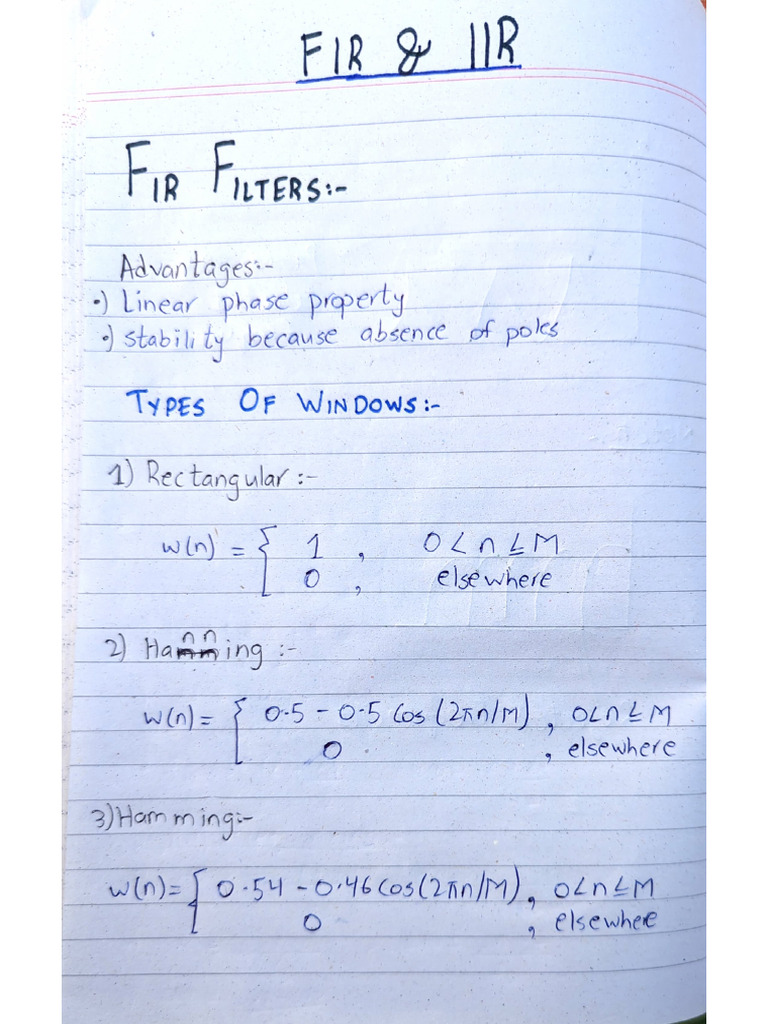 FIR & IIR
FIR FILTERS:-
Advantages:-
•) Linear phase property
•) stability because absence of poles
TYPES OF WINDOWS:-
1) Rectangular:-
w(n) = { 1 , 0 < n ≤ M
0 , elsewhere
2) Hanning:-
w(n) = { 0.5 - 0.5 Cos (2πn/M) , 0<n≤M
0 , elsewhere
3) Hamming:-
w(n) = { 0.54 - 0.46 Cos(2πn/M) , 0<n≤M
0 , elsewhere